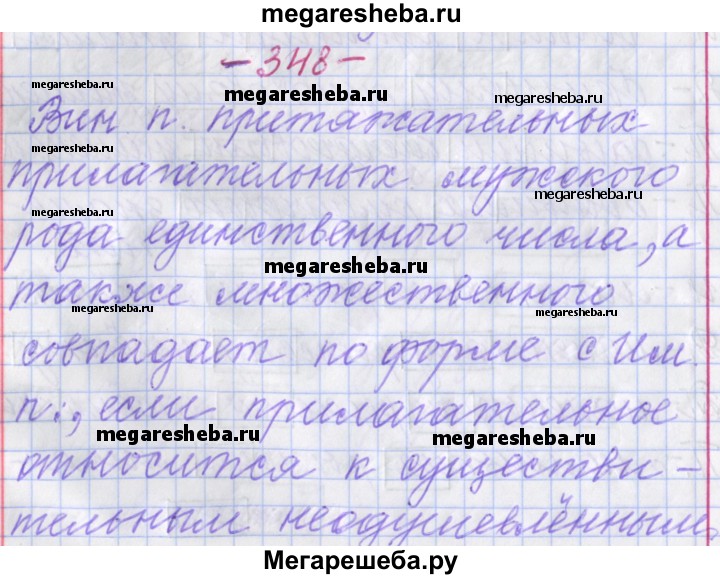 megaresheba.ru
-348-
megaresheba.ru
megaresheba.ru
megaresheba.ru
Вин п. притяжательных
megaresheba.ru
прилагательных мужского
megaresheba.ru
megaresheba.ru
рода единственного числа, а
megaresheba.ru
также множественного
megaresheba.ru
megaresheba.ru
совпадает по форме с Им.
п., если прилагательное
megaresheba.ru
megaresheba.ru
относится к существи-
тельным неодушевлённым.
megaresheba.ru
Мегарешеба.ру